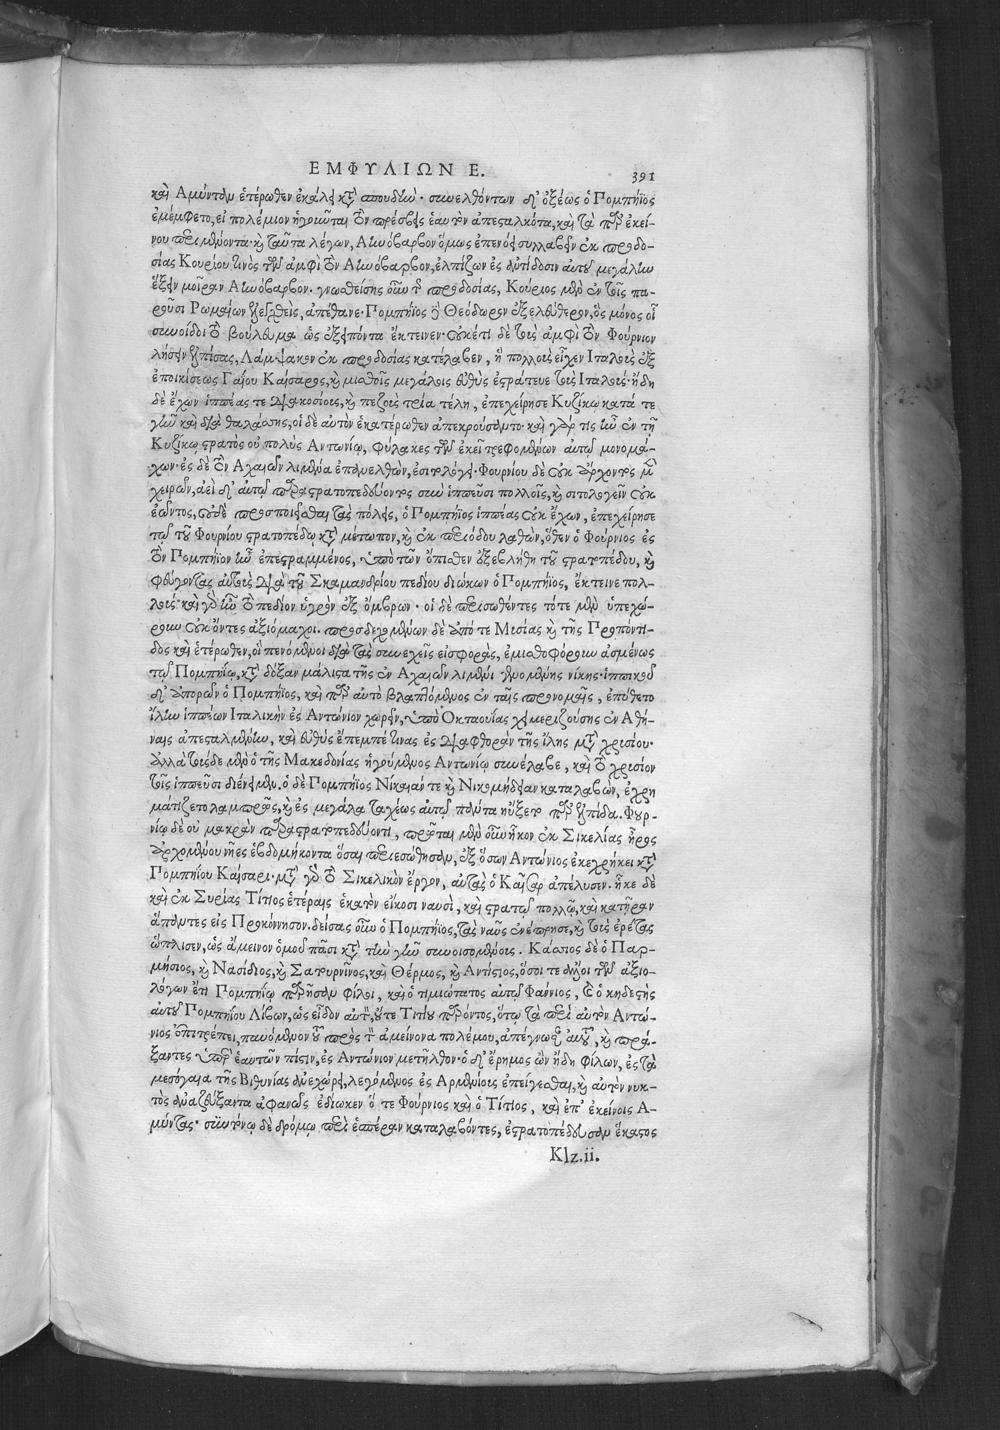 ΕΜΦΥΛΙΩΝ Ε. 391
καὶ Ἀμύνταν ἑτέρωθεν ἐκάλει κατὰ σπουδήν· συνελθόντων δ' ὀξέως ὁ Πομπήϊος
ἐμέμφετο, εἰ πολέμιον ἡγοῦνται τὸν πρέσβεις ἑαυτὸν ἀπεσταλκότα, καὶ τὰ παρ' ἐκεί-
νου περιμένοντα· καὶ ταῦτα λέγων, Αἰνόβαρβον ὅμως ἐπενόει συλλαβεῖν ἐκ προδο-
σίας Κουρίου τινὸς τῶν ἀμφὶ τὸν Αἰνόβαρβον, ἐλπίζων ἐς ἀντίδοσιν αὐτοῦ μεγάλην
ἕξειν μοῖραν Αἰνόβαρβον. γνωσθείσης οὖν τῆς προδοσίας, Κούριος μὲν ἐν τοῖς πα-
ροῦσι Ρωμαίων ἐλεγχθεὶς, ἀπέθανε· Πομπήϊος δὲ Θεόδωρον ἐξελεύθερον, ὃς μόνος οἷ
συνοίδει τὸ βούλευμα ὡς ἐξειπόντα ἔκτεινεν· οὐκέτι δὲ τοὺς ἀμφὶ τὸν Φούρνιον
λήσειν ἐλπίσας, Λάμψακον ἐκ προδοσίας κατέλαβεν, ἣ πολλοὺς εἶχεν Ἰταλοὺς ἐξ
ἐποικίσεως Γαΐου Καίσαρος, καὶ μισθοῖς μεγάλοις εὐθὺς ἐστράτευε τοὺς Ἰταλούς· ἤδη
δὲ ἔχων ἱππέας τε διακοσίους, καὶ πεζοὺς τρία τέλη, ἐπεχείρησε Κυζίκῳ κατά τε
γῆν καὶ διὰ θαλάσσης, οἱ δὲ αὐτὸν ἑκατέρωθεν ἀπεκρούσαντο· καὶ γάρ τις ἦν ἐν τῇ
Κυζίκῳ στρατὸς οὐ πολὺς Ἀντωνίῳ, φύλακες τῶν ἐκεῖ τρεφομένων αὐτῷ μονομά-
χων· ἐς δὲ τὸν Ἀχαιῶν λιμένα ἐπανελθὼν, ἐσιτολόγει· Φουρνίου δὲ οὐκ ἄρχοντος μὲν
χειρῶν, ἀεὶ δ' αὐτῷ παραστρατοπεδεύοντος σὺν ἱππεῦσι πολλοῖς, καὶ σιτολογεῖν οὐκ
ἐῶντος, οὐδὲ προσποιεῖσθαι τὰς πόλεις, ὁ Πομπήϊος ἱππέας οὐκ ἔχων, ἐπεχείρησε
τῷ τοῦ Φουρνίου στρατοπέδῳ κατὰ μέτωπον, καὶ ἐκ περιόδου λαθὼν, ὅθεν ὁ Φούρνιος ἐς
τὸν Πομπήϊον ἦν ἐπεστραμμένος, ὑπὸ τῶν ὄπιθεν ἐξεβλήθη τοῦ στρατοπέδου, καὶ
φεύγοντας αὐτοὺς διὰ τοῦ Σκαμανδρίου πεδίου διώκων ὁ Πομπήϊος, ἔκτεινε πολ-
λούς· καὶ γὰρ ἦν τὸ πεδίον ὑγρὸν ἐξ ὄμβρων· οἱ δὲ περισωθέντες τότε μὲν ὑπεχώ-
ρουν οὐκ ὄντες ἀξιόμαχοι. προσδεχομένων δὲ ἀπό τε Μυσίας καὶ τῆς Προποντί-
δος καὶ ἑτέρωθεν, οἱ πενόμενοι διὰ τὰς συνεχεῖς εἰσφορὰς, ἐμισθοφόρουν ἀσμένως
τῷ Πομπηΐῳ, κατὰ δόξαν μάλιστα τῆς ἐν Ἀχαιῶν λιμένι γενομένης νίκης· ἱππικοῦ
δ' ἀπορῶν ὁ Πομπήϊος, καὶ παρ' αὐτὸ βλαπτόμενος ἐν ταῖς προνομαῖς, ἐπύθετο
ἴλην ἱππέων Ἰταλικὴν ἐς Ἀντώνιον χωρεῖν, ὑπὸ Ὀκταουίας χειμαζούσης ἐν Ἀθή-
ναις ἀπεσταλμένην, καὶ εὐθὺς ἔπεμπέ τινας ἐς διαφθορὰν τῆς ἴλης μετὰ χρυσίου·
ἀλλὰ τούσδε μὲν ὁ τῆς Μακεδονίας ἡγούμενος Ἀντωνίῳ συνέλαβε, καὶ τὸ χρυσίον
τοῖς ἱππεῦσι διένειμεν. ὁ δὲ Πομπήϊος Νίκαιάν τε καὶ Νικομήδειαν καταλαβὼν, ἐχρη
μάτιζετο λαμπρῶς, καὶ ἐς μεγάλα ταχέως αὐτῷ πολλὰ ηὔξετο παρ' ἐλπίδα. Φουρ-
νίῳ δὲ οὐ μακρὰν παραστρατοπεδεύοντι, πρῶται μὲν οὖν ἧκον ἐκ Σικελίας ἦρος
ἀρχομένου νῆες ἑβδομήκοντα ὅσαι περιεσώθησαν, ἐξ ὅσων Ἀντώνιος ἐκεχρήκει κατὰ
Πομπηΐου Καίσαρι· μετὰ γὰρ τὸ Σικελικὸν ἔργον, αὐτὰς ὁ Καῖσαρ ἀπέλυσεν. ἧκε δὲ
καὶ ἐκ Συρίας Τίτιος ἑτέραις ἑκατὸν εἴκοσι ναυσὶ, καὶ στρατῷ πολλῷ, καὶ κατῆραν
ἅπαντες εἰς Προκόννησον. δείσας οὖν ὁ Πομπήϊος, τὰς ναῦς ἐνέπρησε, καὶ τοὺς ἐρέτας
ὥπλισεν, ὡς ἄμεινον ὁμοῦ πᾶσι κατὰ τὴν γῆν συνοισομένοις. Κάσσιος δὲ ὁ Παρ-
μήσιος, καὶ Νασίδιος, καὶ Σατυρνῖνος, καὶ Θέρμος, καὶ Ἀντίστιος, ὅσοι τε ἄλλοι τῶν ἀξιο-
λόγων ἔτι Πομπηΐῳ παρῆσαν φίλοι, καὶ ὁ τιμιώτατος αὐτῷ Φάνιος, καὶ ὁ κηδεστὴς
αὐτοῦ Πομπηΐου Λίβων, ὡς εἶδον αὐτὸν, οὔτε Τιτίου παρόντος, ὅτῳ τὰ περὶ αὐτὸν Ἀντώ-
νιος ἐπιτρέπει, παυόμενον τοῦ πρὸς τὸν ἀμείνονα πολέμου, ἀπέγνωσαν αὐτοῦ, καὶ πρά-
ξαντες ὑπὲρ ἑαυτῶν πίστιν, ἐς Ἀντώνιον μετῆλθον· ὁ δ' ἔρημος ὢν ἤδη φίλων, ἐς τὰ
μεσόγαια τῆς Βιθυνίας ἀνεχώρει, λεγόμενος ἐς Ἀρμενίους ἐπείγεσθαι, καὶ αὐτὸν νυκ-
τὸς ἀναζεύξαντα ἀφανῶς ἐδίωκεν ὅ τε Φούρνιος καὶ ὁ Τίτιος, καὶ ἐπ' ἐκείνοις Ἀ-
μύντας· συντόνῳ δὲ δρόμῳ περὶ ἑσπέραν καταλαβόντες, ἐστρατοπέδευσαν ἕκαστος
Klz.ii.